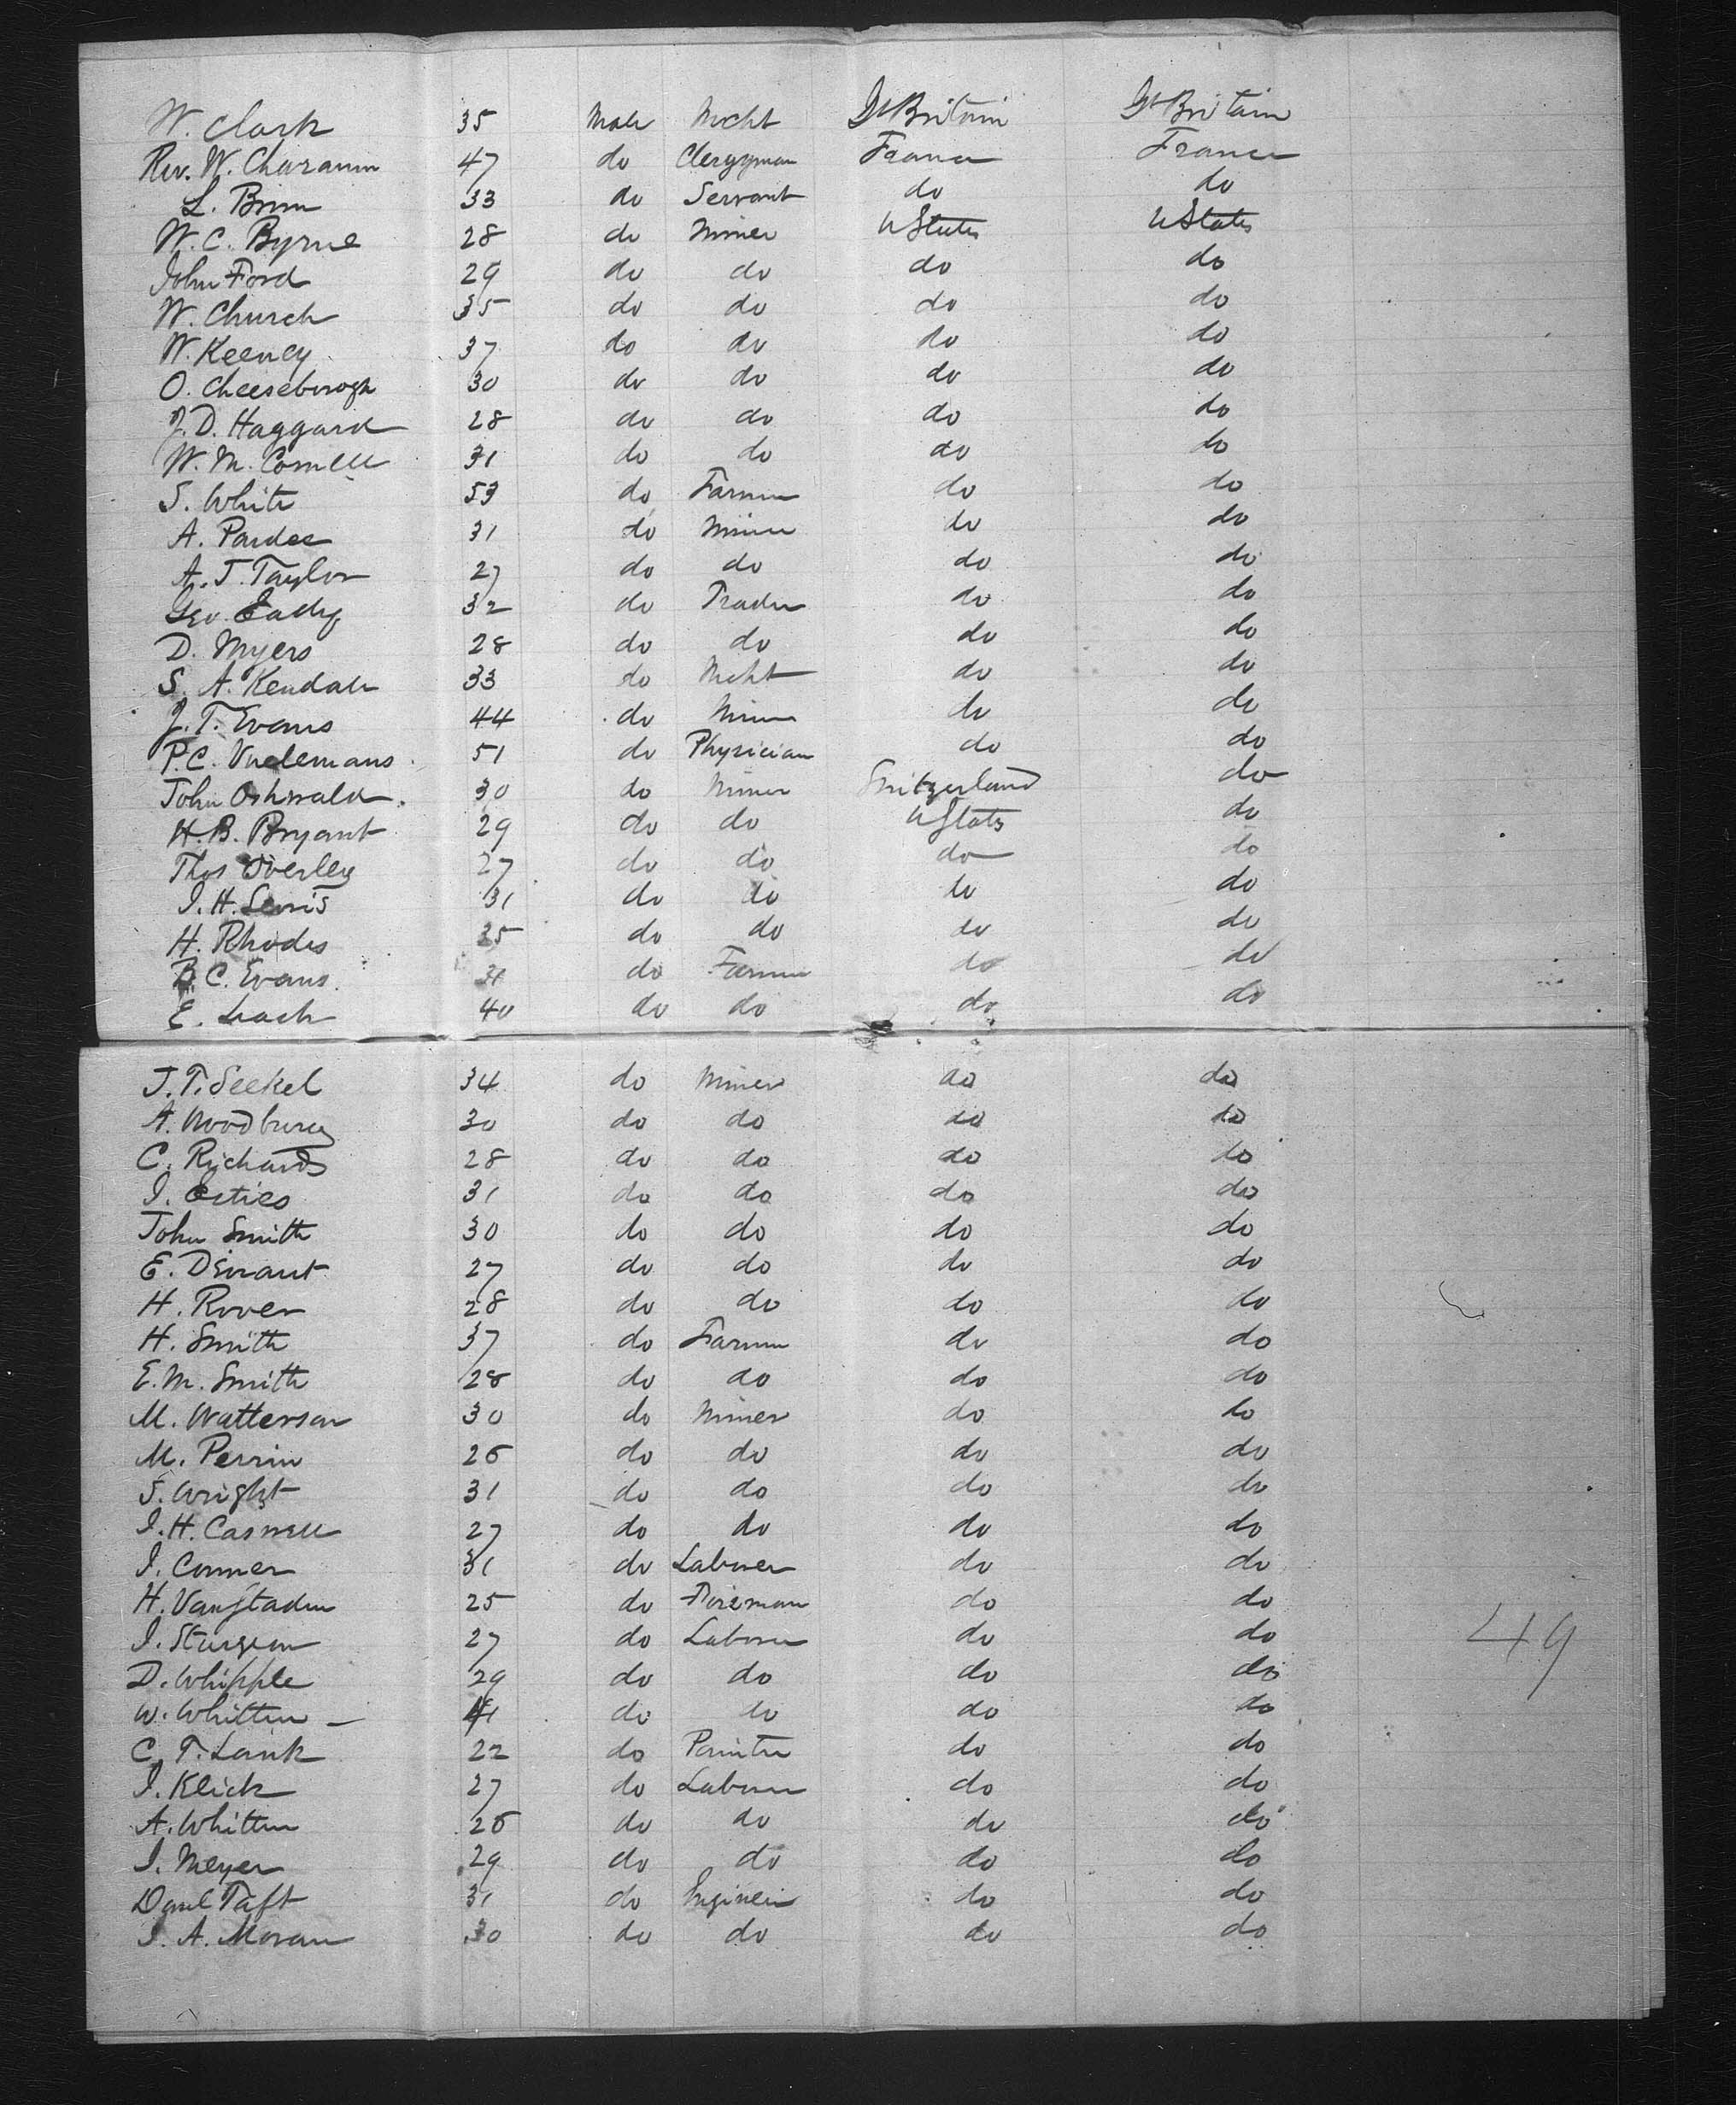 W. Clark 35 Male Mrcht Gt Britain Gt Britain
Rev. W. Charaum 47 do Clergyman France France
L. Brim 33 do Servant do do
W. C. Byrne 28 do Miner U States U States
John Ford 29 do do do do
W. Church 35 do do do do
W. Keency 37 do do do do
O. Cheeseborogh 30 do do do do
J. D. Haggard 28 do do do do
W. M. Cornell 31 do do do do
S. White 53 do Farmer do do
A. Pardee 31 do Miner do do
A. J. Taylor 27 do do do do
Geo. Eady 32 do Trader do do
D. Myers 28 do do do do
S. A. Kendall 33 do Mcht do do
J. T. Evans 44 do Miner do do
P. C. Vuelemans 51 do Physician do do
John Oshwald 30 do Miner Switzerland do
H. B. Bryant 29 do do U States do
Thos Overley 27 do do do do
I. H. Lewis 31 do do do do
H. Rhodes 35 do do do do
B. C. Evans 31 do Farmer do do
E. Leach 40 do do do do
J. T. Seekel 34 do Miner do do
A. Woodbury 30 do do do do
C. Richards 28 do do do do
I. Esties 31 do do do do
John Smith 30 do do do do
E. Devrant 27 do do do do
H. Rover 28 do do do do
H. Smith 37 do Farmer do do
E. M. Smith 28 do do do do
M. Watterson 30 do Miner do do
M. Perrin 26 do do do do
S. Wright 31 do do do do
I. H. Caswell 27 do do do do
I. Conner 31 do Laborer do do
H. Vanstaden 25 do Fireman do do
I. Sturgeon 27 do Laborer do do 49
D. Whipple 29 do do do do
W. Whitten 41 do do do do
C. T. Lank 22 do Painter do do
I. Klick 27 do Laborer do do
A. Whitten 26 do do do do
I. Meyer 29 do do do do
Danl Taft 31 do Engineer do do
I. A. Moran 30 do do do do